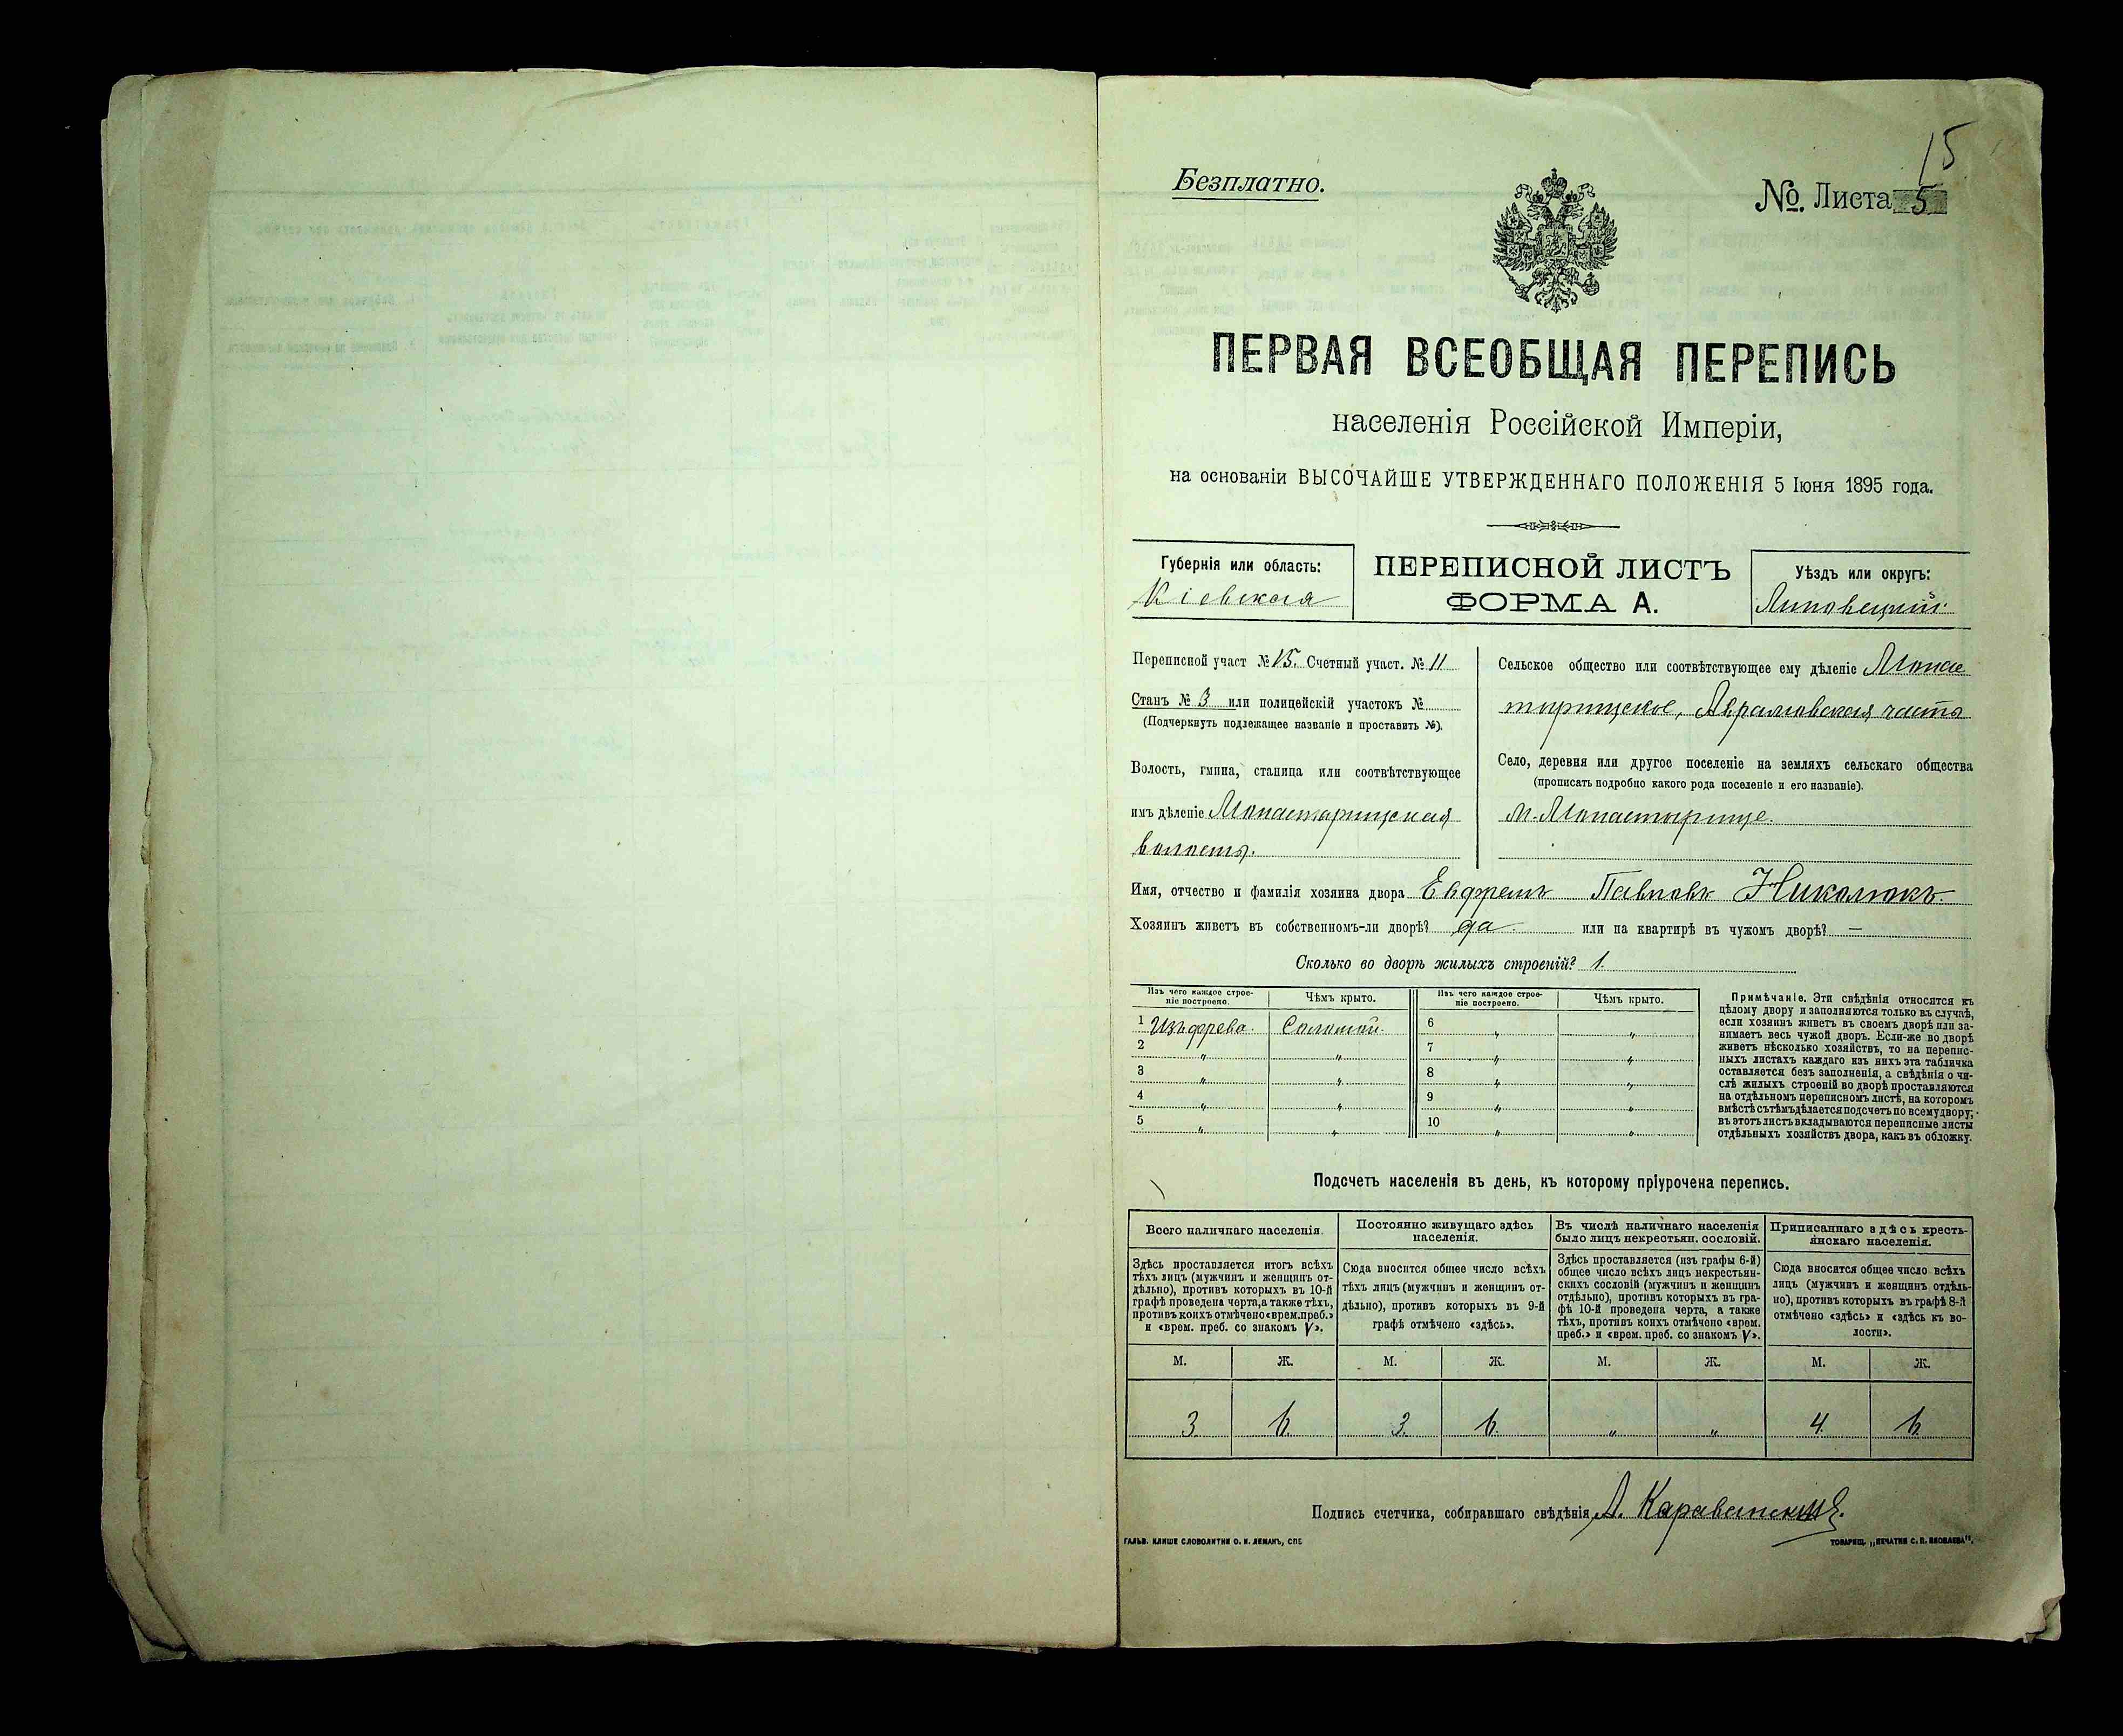 15
Безплатно.
№. Листа 5
ПЕРВАЯ ВСЕОБЩАЯ ПЕРЕПИСЬ
населенія Россійской Имперіи,
на основаніи ВЫСОЧАЙШЕ УТВЕРЖДЕННАГО ПОЛОЖЕНІЯ 5 Іюня 1895 года.
Губернія или область:
Кіевская
ПЕРЕПИСНОЙ ЛИСТЪ
ФОРМА А.
Уѣздъ или округъ:
Липовецкій
Переписной участ №15. Счетный участ. № 11
Станъ № 3 или полицейскій участокъ №
(Подчеркнуть подлежащее названіе и проставить №).
Волость, гмина, станица или соотвѣтствующее
имъ дѣленіе Монастырищская
волость.
Сельское общество или соотвѣтствующее ему дѣленіе Монас
тырищское, Аврамовская часть
Село, деревня или другое поселеніе на земляхъ сельскаго общества
(прописать подробно какого рода поселеніе и его названіе).
м. Монастырище.
Имя, отчество и фамилія хозяина двора Евфремъ Павловъ Николюкъ.
Хозяинъ живетъ въ собственномъ-ли дворѣ? да. или на квартирѣ въ чужомъ дворѣ? —
Сколько во дворѣ жилыхъ строеній? 1.
Изъ чего каждое строе-
ніе построено.
Чѣмъ крыто.
Изъ чего каждое строе-
ніе построено.
Чѣмъ крыто.
1 Изъ дерева. Соломой. 6 " "
2 " " 7 " "
3 " " 8 " "
4 " " 9 " "
5 " " 10 " "
Примѣчаніе. Эти свѣдѣнія относятся къ
цѣлому двору и заполняются только въ случаѣ,
если хозяинъ живетъ въ своемъ дворѣ или за-
нимаетъ весь чужой дворъ. Если-же во дворѣ
живетъ нѣсколько хозяйствъ, то на перепис-
ныхъ листахъ каждаго изъ нихъ эта табличка
оставляется безъ заполненія, а свѣдѣнія о чи-
слѣ жилыхъ строеній во дворѣ проставляются
на отдѣльномъ переписномъ листѣ, на которомъ
вмѣстѣ съ тѣмъ дѣлается подсчетъ по всему двору;
въ этотъ листъ вкладываются переписные листы
отдѣльныхъ хозяйствъ двора, какъ въ обложку.
Подсчетъ населенія въ день, къ которому пріурочена перепись.
Всего наличнаго населенія.
Здѣсь проставляется итогъ всѣхъ
тѣхъ лицъ (мужчинъ и женщинъ от-
дѣльно), противъ которыхъ въ 10-й
графѣ проведена черта, а также тѣхъ,
противъ коихъ отмѣчено «врем. преб.»
и «врем. преб. со знакомъ V».
Постоянно живущаго здѣсь
населенія.
Сюда вносится общее число всѣхъ
тѣхъ лицъ (мужчинъ и женщинъ от-
дѣльно), противъ которыхъ въ 9-й
графѣ отмѣчено «здѣсь».
Въ числѣ наличнаго населенія
было лицъ некрестьян. сословій.
Здѣсь проставляется (изъ графы 6-й)
общее число всѣхъ лицъ некрестьян-
скихъ сословій (мужчинъ и женщинъ
отдѣльно), противъ которыхъ въ гра-
фѣ 10-й проведена черта, а также
тѣхъ, противъ коихъ отмѣчено «врем.
преб.» и «врем. преб. со знакомъ V».
Приписаннаго здѣсь кресть-
янскаго населенія.
Сюда вносится общее число всѣхъ
лицъ (мужчинъ и женщинъ отдѣль-
но), противъ которыхъ въ графѣ 8-й
отмѣчено «здѣсь» и «здѣсь къ во-
лости».
М. Ж. М. Ж. М. Ж. М. Ж.
3 6. 3. 6. " " 4. 6.
Подпись счетчика, собиравшаго свѣдѣнія
ГАЛЬВ. КЛИШЕ СЛОВОЛИТНИ О. И. ЛЕМАНЪ, СПБ
ТОВАРИЩ. „ПЕЧАТНЯ С. П. ЯКОВЛЕВА“.